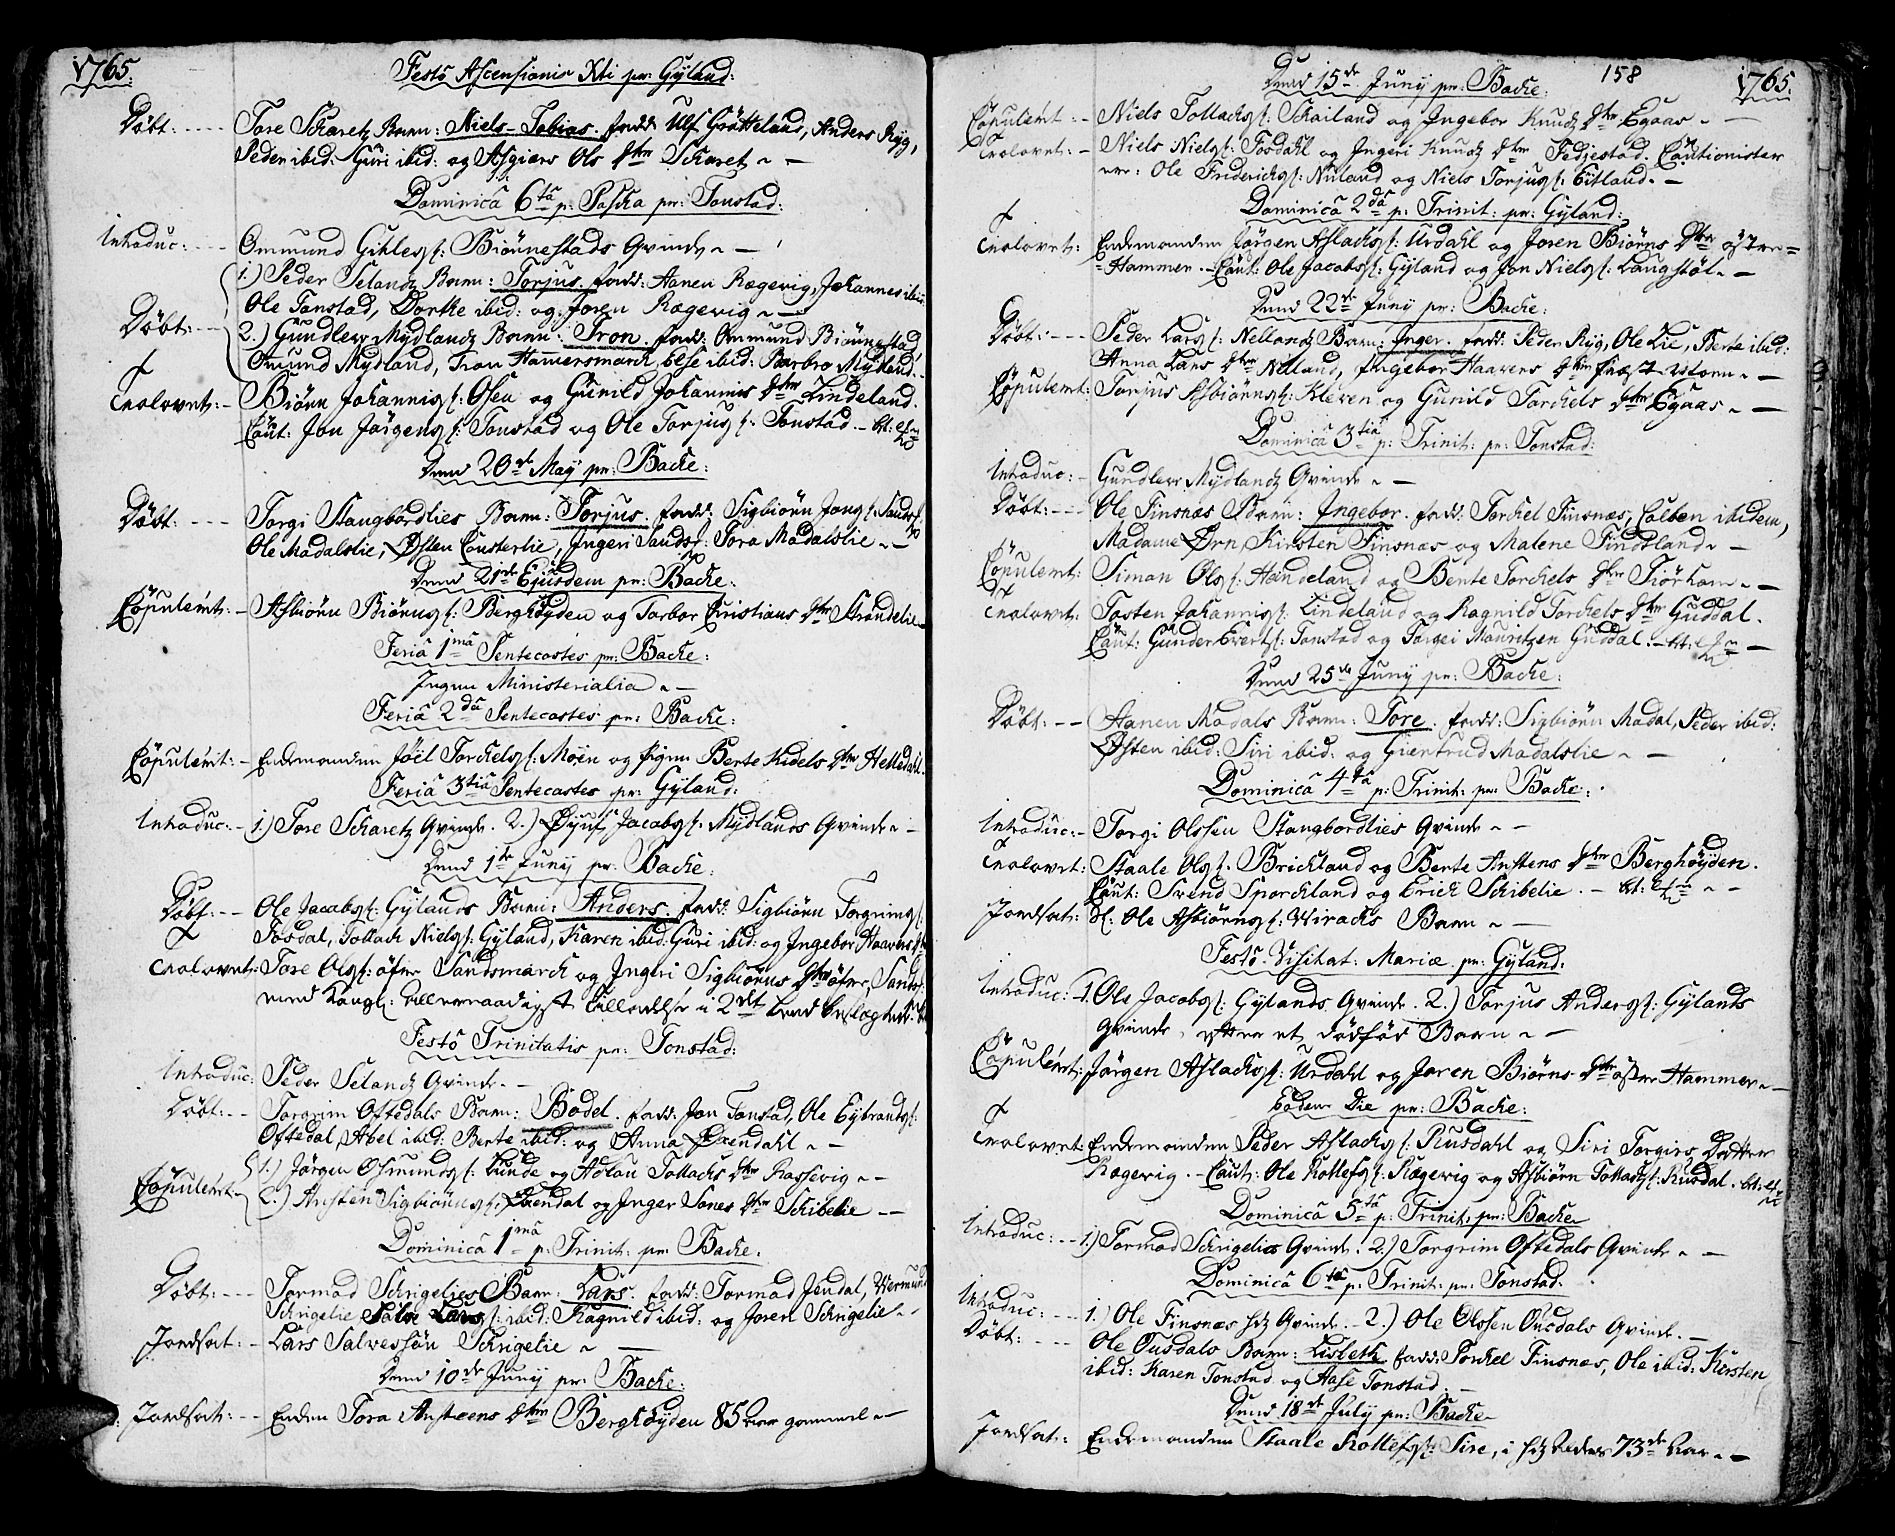 1765.
Festo Ascensionis Xti pr: Gyland:
Döbt: ---- Tore Skaretz Barn: Niels-Tobias. fadd: Ulf Grötteland, Anders Ryg,
Peder ibid: Guri ibid: og Asgiærs Ols Dtr Skaret ~ —
Dominica 6ta p: Pascha pr: Tonstad:
Introduc: --- Ommund Gikles s: Biönnestads Qvinde ~ —
Döbt: -- 1.) Peder Selandz Barn: Torjus. fadd: Hanen Rægevig, Johannes ibid:
Ole Tonstad, Dorthe ibid: og Joren Rægevig ~ —
2.) Gundlev Mydlandz Barn: Tron. fadd: Ommund Biönnestad
Omund Mydland, Tron Hammersmarck, Else ibid: Barbro Mydland: -
Trolovet: - Biörn Johannis s: Osen og Gunild Johannis Dtr Lindeland.
Caut: Jon Jörgens s: Tonstad og Ole Torjus s: Tonstad. —
Dend 20de May pr: Backe:
Döbt: --- Torgi Stangbordlies Barn: Torjus. fadd: Sigbiörn Jons s: Sands
Ole Madalslie, Østen Cousterlie, Ingeri Sands: Tora Madalslie ~ —
Dend 21de Ejusdem pr: Backe:
Copulert: - Asbiörn Biörns s: Berghöyden og Torbor Christians Dtr Strandelie
Feria 1ma Pentecostes pr: Backe:
Ingen Ministerialia ~ —
Feria 2da Pentecostes pr: Backe:
Copulert: - Enkemanden Joel Torckels s: Moen og Pigen Berte Kidels Dtr Helledahl.
Feria 3tia Pentecostes pr: Gyland:
Introduc: - 1.) Tore Skaretz Qvinde. 2.) Jacobs s: Mydlands Qvinde ~ —
Dend 1de Juny pr: Backe:
Döbt: -- Ole Jacobs s: Gylands Barn: Anders. fadd: Sigbiörn Torgrims s:
Tosdal, Tollack Niels s: Gyland, Karen ibid: Guri ibid: og Ingebor Haavers Dtr
Trolovet: Tore Ols s: öfre Sandsmarck og Ingeri Sigbiörns Dtr öfre Sands:
med Kongl: Allernaadigst Tilladelse i 2det Leed Beslægtede.
Festo Trinitatis pr: Tonstad:
Introduc: Peder Selandz Qvinde. —
Döbt: -- Torgrim Oftedals Barn: Bodel. fadd: Jon Tonstad, Ole Eybrands s:
Oftedal, Abel ibid: Berte ibid: og Anna Øxendahl ~ —
Copulert: 1.) Jörgen Osmunds s: Lunde og Adlau Tollacks Dtr Rassevig ~ —
2.) Ansten Sigbiörns s: Øxendal og Inger Tones Dtr Skibelie — —
Dominica 1ma p: Trinit: pr: Backe:
Döbt: --- Tormod Skrigelies Barn: Lars. fadd: Tormod Jendal, Vermund
Skrigelie, Salve Lars s: ibid: Ragnild ibid: og Joren Skrigelie ~ -
Jordsat: - Lars Salvessön Skrigelie ~ —
Dend 10de Juny pr: Backe:
Jordsat: -- Enken Tora Ansteens Dtr Berghöyden 85 Aar gammel ~ —
158
1765.
Dend 15de Juny pr: Backe:
Copulert: - Niels Tollacks s: Skailand og Ingebor Knuds Dtr Egaas ~ —
Trolovet: - Niels Niels s: Tosdahl og Ingeri Knuds Dtr Fedjestad. Cautionister
ere: Ole Friderichs s: Nuland og Niels Torjus s: Eitland. —
Dominica 2da p: Trinit: pr: Gyland:
Trolovet: Enkemanden Jörgen Aslacks s: Urdahl og Joren Biörns Dtr östre=
=Hammer. - Caut: Ole Jacobs s: Gyland og Jon Niels s: Laugstöl ~ —
Dend 22de Juny pr: Backe:
Döbt: --- Peder Lars s: Nellands Barn: Inger. fadd: Peder Ryg, Ole Lie, Berte ibid:
Anna Lars Dtr Nuland, Ingebor Haavers Dtr Præstvolden ~ —
Copulert: Torjus Asbiörns s: Kleven og Gunild Torckels Dtr Egaas ~ —
Dominica 3tia p: Trinit: pr: Tonstad:
Introduc: - Gundlev Mydlandz Qvinde ~ —
Döbt: --- Ole Finsnæs Barn: Ingebor. fadd: Torckel Finsnæs, Colben ibidem,
Madame Ørn, Kirsten Finsnæs og Malene Findsland ~ —
Copulert: Simon Ols s: Handeland og Bente Torckels Dtr Kiörkom ~ —
Trolovet: Tosten Johannis s: Lindeland og Ragnild Torckels Dtr Guddal.
Caut: Gunder Everts s: Tonstad og Torgei Mauritzen Guddal. —
Dend 25de Juny pr: Backe:
Döbt: -- Hanen Madals Barn: Tore. fadd: Sigbiörn Madal, Peder ibid:
Østen ibid: Siri ibid: og Giertrud Madalslie ~ —
Dominica 4ta p: Trinit: pr: Backe:
Introduc: - Torgi Olssen Stangbordlies Qvinde ~ —
Trolovet: Staale Ols s: Brickland og Berte Anstens Dtr Berghöyden.
Caut: Svend Sporckland og Erick Skibelie. —
Jordsat: Ole Asbiörns s: Viracks Barn ~ —
Festo Visitat: Mariæ pr: Gyland:
Introduc: 1. Ole Jacobs s: Gylands Qvinde. 2.) Torjus Anders s: Gylands
Qvinde, efter et dödföd Barn ~ —
Copulert: Jörgen Aslacks s: Urdahl og Joren Biörns Dtr östre Hammer ~ —
Eodem Die pr: Backe:
Trolovet: Enkemanden Peder Aslacks s: Rusdahl og Siri Torgiers Datter
Rægevig. - Caut: Ole Rollefs s: Rægevig og Asbiörn Tollacks s: Rusdal.
Dominica 5ta p: Trinit: pr: Backe
Introduc: -- 1.) Tormod Skrigelies Qvinde. 2.) Torgrim Oftedals Qvinde ~ —
Dominica 6ta p: Trinit: pr: Tonstad.
Introduc: --- 1.) Ole Finsnæs Qvinde. - 2.) Ole Olssen Ousdals Qvinde. —
Döbt: --- Ole Ousdals Barn: Lisbeth. fadd: Torckel Finsnæs, Ole ibid: Kirsten
ibid: Karen Tonstad og Aase Tonstad: —
Dend 18de July pr: Backe
Jordsat: Enkemanden Staale Rollefs s: Sire, i sit Alders 73de Aar ~ —